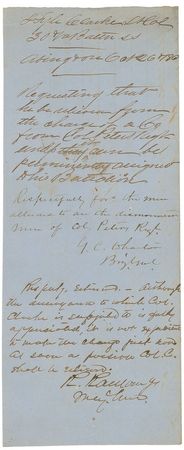 J. Lyle Clarke Lt Col
30 Va Battn SS
Abingdon Oct 26
Requesting that
he be relieved from
the absence of a Co.
from Col Peters Regt
and they can be
permanently assigned
to his Battalion
Respectfully for. the men
alluded to are the dismounted
men of Col. Peters Regt.
G. C. Wharton
Brig Genl
Resptfy, returned. – Although
the annoyance to which Col.
Clarke is subjected is fully
appreciated, it is not expedient
to make the change just now
As soon as possible Col. C.
shall be relieved.
R. Ransom Jr
Maj Genl